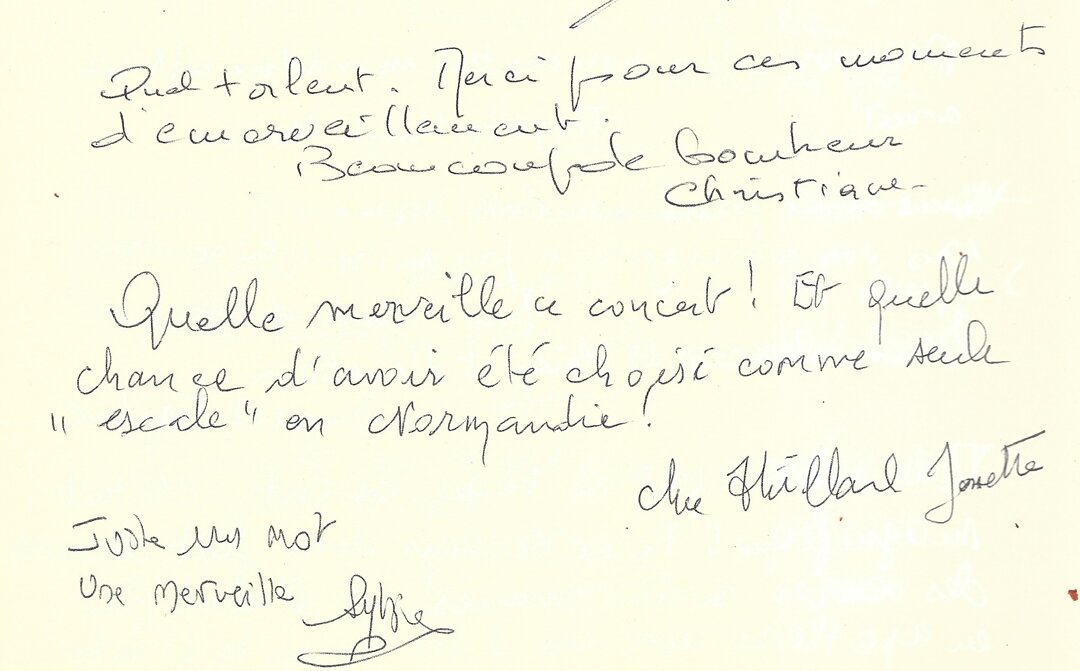 Quel talent. Merci pour ces moments
d'emerveillement.
Beaucoup de bonheur
Christiane
Quelle merveille ce concert ! Et quelle
chance d'avoir été choisi comme seule
"escale" en Normandie !
Josette
Juste un mot
Une merveille Sylvie